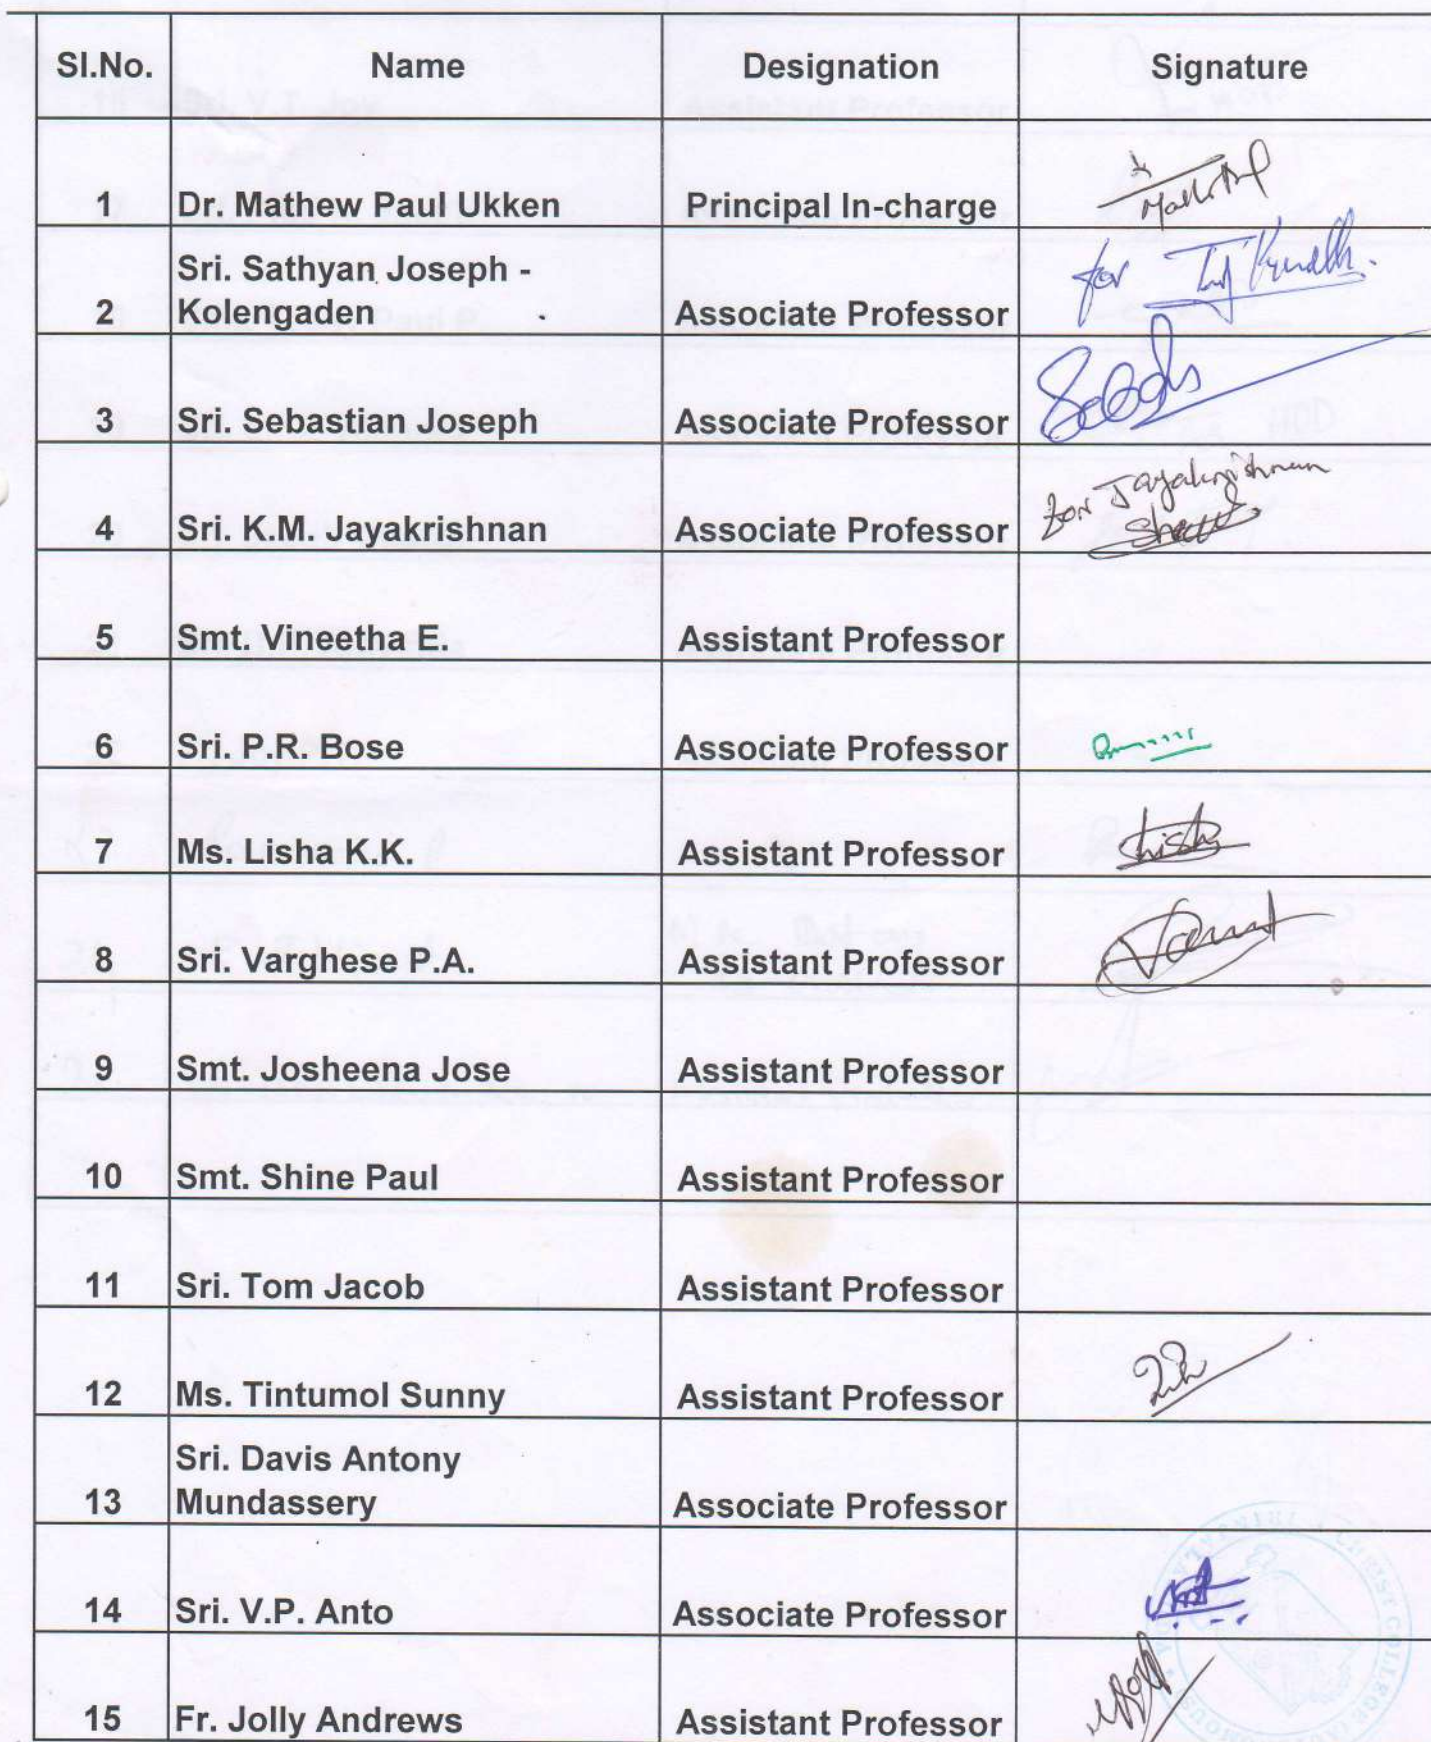 Sl.No. Name Designation Signature
1 Dr. Mathew Paul Ukken Principal In-charge
Sri. Sathyan Joseph - for
2 Kolengaden Associate Professor
3 Sri. Sebastian Joseph Associate Professor
for Jayakrishnan
4 Sri. K.M. Jayakrishnan Associate Professor
5 Smt. Vineetha E. Assistant Professor
6 Sri. P.R. Bose Associate Professor
7 Ms. Lisha K.K. Assistant Professor
8 Sri. Varghese P.A. Assistant Professor
9 Smt. Josheena Jose Assistant Professor
10 Smt. Shine Paul Assistant Professor
11 Sri. Tom Jacob Assistant Professor
12 Ms. Tintumol Sunny Assistant Professor
Sri. Davis Antony
13 Mundassery Associate Professor
CHRIST COLLEGE
14 Sri. V.P. Anto Associate Professor
15 Fr. Jolly Andrews Assistant Professor